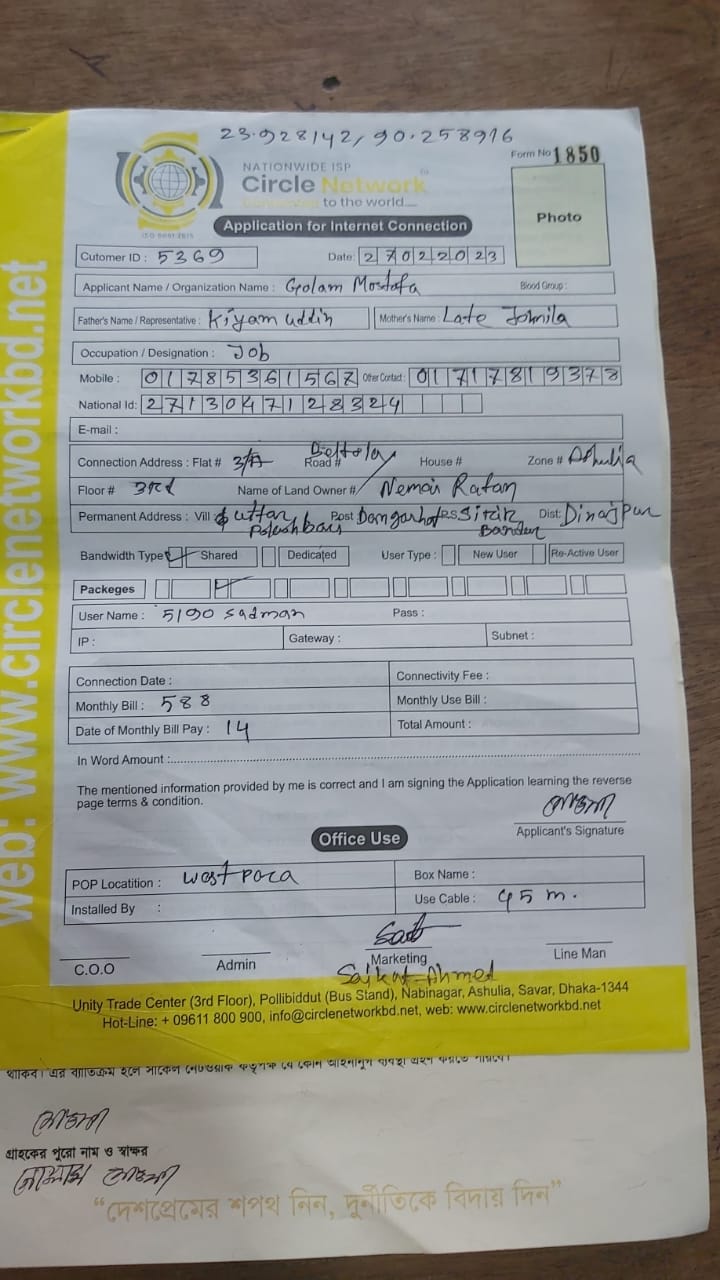 23.928142, 90.258916
Form No 1850
NATIONWIDE ISP
Circle Network
Connecting to the world....
ISO 9001:2015
Photo
Application for Internet Connection
Cutomer ID : 5369 Date: 27022023
Applicant Name / Organization Name : Golam Mostafa Blood Group :
Father's Name / Representative : Kiyam uddin Mother's Name : Late Jomila
Occupation / Designation : Job
Mobile : 01785361567 Other Contact : 01717819378
National Id: 2713047128324
E-mail :
Connection Address : Flat # 3/A Road # House # Zone # Ashulia
Floor # 3rd Name of Land Owner # Nemai Ratan
Permanent Address : Vill uttar Palashbari Post PS Dist: Dinajpur
Bandwidth Type Shared Dedicated User Type : New User Re-Active User
Packeges
User Name : 5190 sadman Pass :
IP : Gateway : Subnet :
Connection Date : Connectivity Fee :
Monthly Bill : 588 Monthly Use Bill :
Date of Monthly Bill Pay : 14 Total Amount :
In Word Amount :
The mentioned information provided by me is correct and I am signing the Application learning the reverse
page terms & condition.
Applicant's Signature
Office Use
POP Locatition : west para Box Name :
Installed By : Use Cable : 45 m.
C.O.O Admin Marketing Line Man
Saikat Ahmed
Unity Trade Center (3rd Floor), Pollibiddut (Bus Stand), Nabinagar, Ashulia, Savar, Dhaka-1344
Hot-Line: + 09611 800 900, info@circlenetworkbd.net, web: www.circlenetworkbd.net
web: www.circlenetworkbd.net
গ্রাহকের পুরো নাম ও স্বাক্ষর
গোলাম মোস্তফা
“দেশপ্রেমের শপথ নিন, দুর্নীতিকে বিদায় দিন”